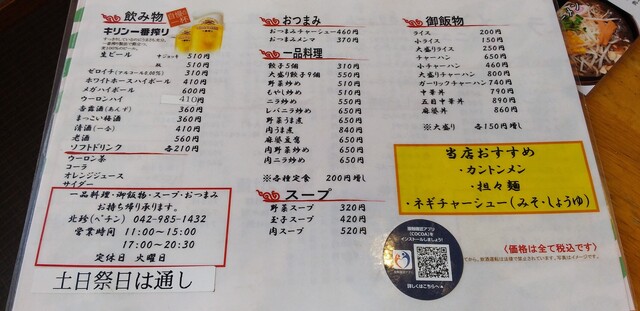 飲み物
キリン一番搾り
生ビール 中ジョッキ 510円
瓶 510円
ゼロイチ(アルコール0.00%) 310円
ホワイトホースハイボール 410円
メガハイボール 600円
ウーロンハイ 410円
杏露酒(あんず) 310円
まっこい梅酒 310円
清酒(一合) 410円
老酒 560円
ソフトドリンク 各210円
ウーロン茶
コーラ
オレンジジュース
サイダー
一品料理・御飯物・スープ・おつまみ
お持ち帰り承ります。
北珍(ペチン) 042-985-1432
営業時間 11:00~15:00
17:00~20:30
定休日 火曜日
土日祭日は通し
おつまみ
おつまみチャーシュー460円
おつまみメンマ 310円
一品料理
餃子5個 310円
大盛り餃子9個 550円
野菜炒め 510円
もやし炒め 510円
ニラ炒め 550円
レバニラ炒め 650円
野菜うま煮 650円
肉うま煮 840円
麻婆豆腐 650円
肉野菜炒め 650円
肉ニラ炒め 650円
※各種定食 200円増し
スープ
野菜スープ 320円
玉子スープ 420円
肉スープ 520円
御飯物
ライス 200円
小ライス 150円
大盛りライス 250円
チャーハン 650円
小チャーハン 460円
大盛りチャーハン 800円
ガーリックチャーハン 740円
中華丼 790円
五目中華丼 890円
麻婆丼 860円
※大盛り 各150円増し
当店おすすめ
・カントンメン
・担々麺
・ネギチャーシュー(みそ・しょうゆ)
接触確認アプリ
(COCOA)を
インストールしましょう!
詳しくはこちらへ
〈価格は全て税込です〉